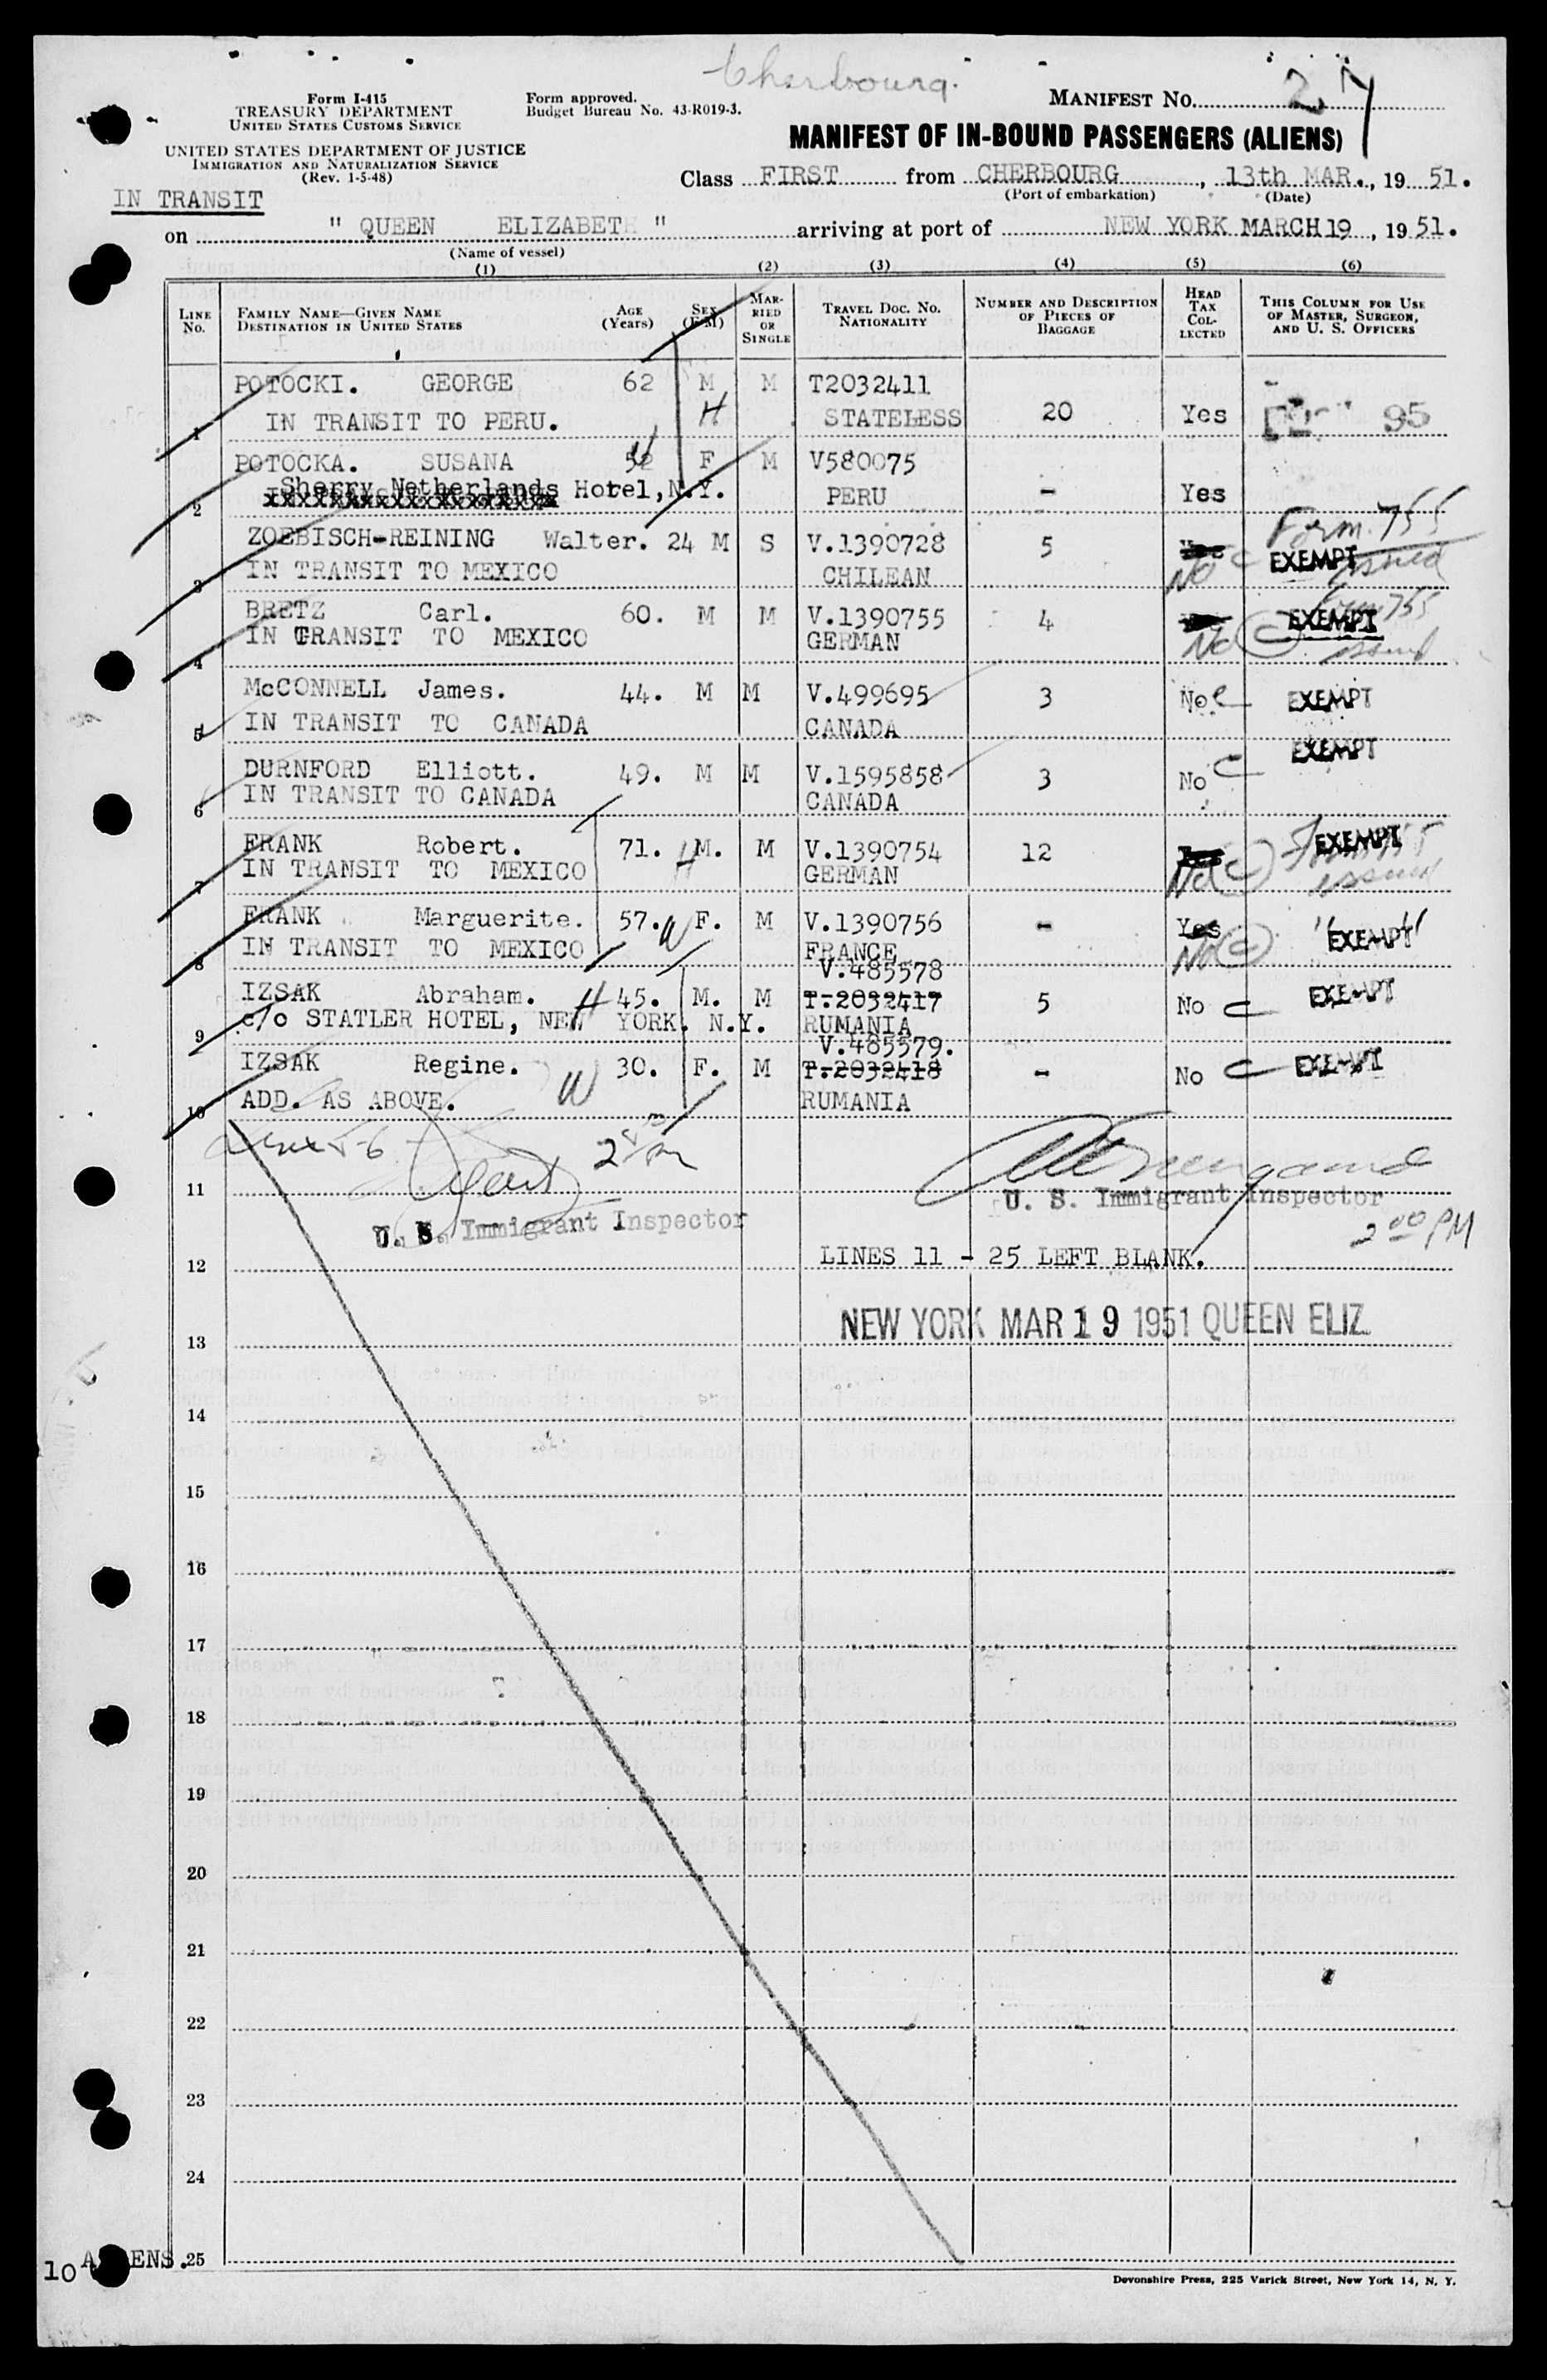 Cherbourg.
Form I-415
TREASURY DEPARTMENT
UNITED STATES CUSTOMS SERVICE
UNITED STATES DEPARTMENT OF JUSTICE
IMMIGRATION AND NATURALIZATION SERVICE
(Rev. 1-5-48)
Form approved.
Budget Bureau No. 43-R019-3.
MANIFEST NO. 27
MANIFEST OF IN-BOUND PASSENGERS (ALIENS)
Class FIRST from CHERBOURG, 13th MAR., 19 51.
(Port of embarkation) (Date)
IN TRANSIT
on " QUEEN ELIZABETH " arriving at port of NEW YORK MARCH 19, 19 51.
(Name of vessel)
(1) (2) (3) (4) (5) (6)
LINE NO. FAMILY NAME—GIVEN NAME DESTINATION IN UNITED STATES AGE (Years) SEX (F-M) MARRIED OR SINGLE TRAVEL DOC. NO. NATIONALITY NUMBER AND DESCRIPTION OF PIECES OF BAGGAGE HEAD TAX COLLECTED THIS COLUMN FOR USE OF MASTER, SURGEON, AND U. S. OFFICERS
POTOCKI. GEORGE 62 M M T2032411
1 IN TRANSIT TO PERU. H STATELESS 20 Yes 95
POTOCKA. SUSANA 52 W F M V580075
2 Sherry Netherlands Hotel, N.Y. PERU - Yes
ZOEBISCH-REINING Walter. 24 M S V.1390728 5 Yes No C Form 755 issued EXEMPT
3 IN TRANSIT TO MEXICO CHILEAN
BRETZ Carl. 60. M M V.1390755 4 No C Form 755 issued EXEMPT
4 IN TRANSIT TO MEXICO GERMAN
McCONNELL James. 44. M M V.499695 3 No C EXEMPT
5 IN TRANSIT TO CANADA CANADA
DURNFORD Elliott. 49. M M V.1595858 3 No C EXEMPT
6 IN TRANSIT TO CANADA CANADA
FRANK Robert. 71. H M. M V.1390754 12 Yes No C Form 755 issued EXEMPT
7 IN TRANSIT TO MEXICO GERMAN
FRANK Marguerite. 57. W F. M V.1390756 - Yes No C " EXEMPT "
8 IN TRANSIT TO MEXICO FRANCE
V.485578
IZSAK Abraham. H 45. M. M T.2032417 5 No C EXEMPT
9 c/o STATLER HOTEL, NEW YORK. N.Y. RUMANIA
V.485579.
IZSAK Regine. W 30. F. M T.2032418 - No C EXEMPT
10 ADD. AS ABOVE. RUMANIA
Lines 5-6
11
U. S. Immigrant Inspector
U. S. Immigrant Inspector
2 00 PM
12 LINES 11 - 25 LEFT BLANK.
NEW YORK MAR 19 1951 QUEEN ELIZ.
13
14
15
16
17
18
19
20
21
22
23
24
25
10 ALIENS.
Devonshire Press, 225 Varick Street, New York 14, N. Y.